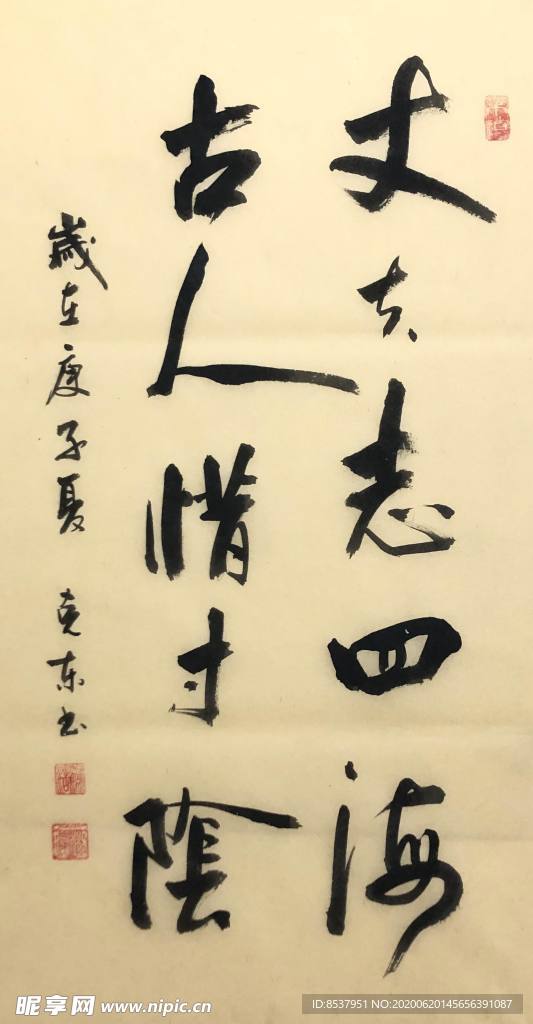 丈夫志四海
古人惜寸陰
歲在庚子夏 克东书
昵享网 www.nipic.cn
ID:8537951 NO:20200620145656391087